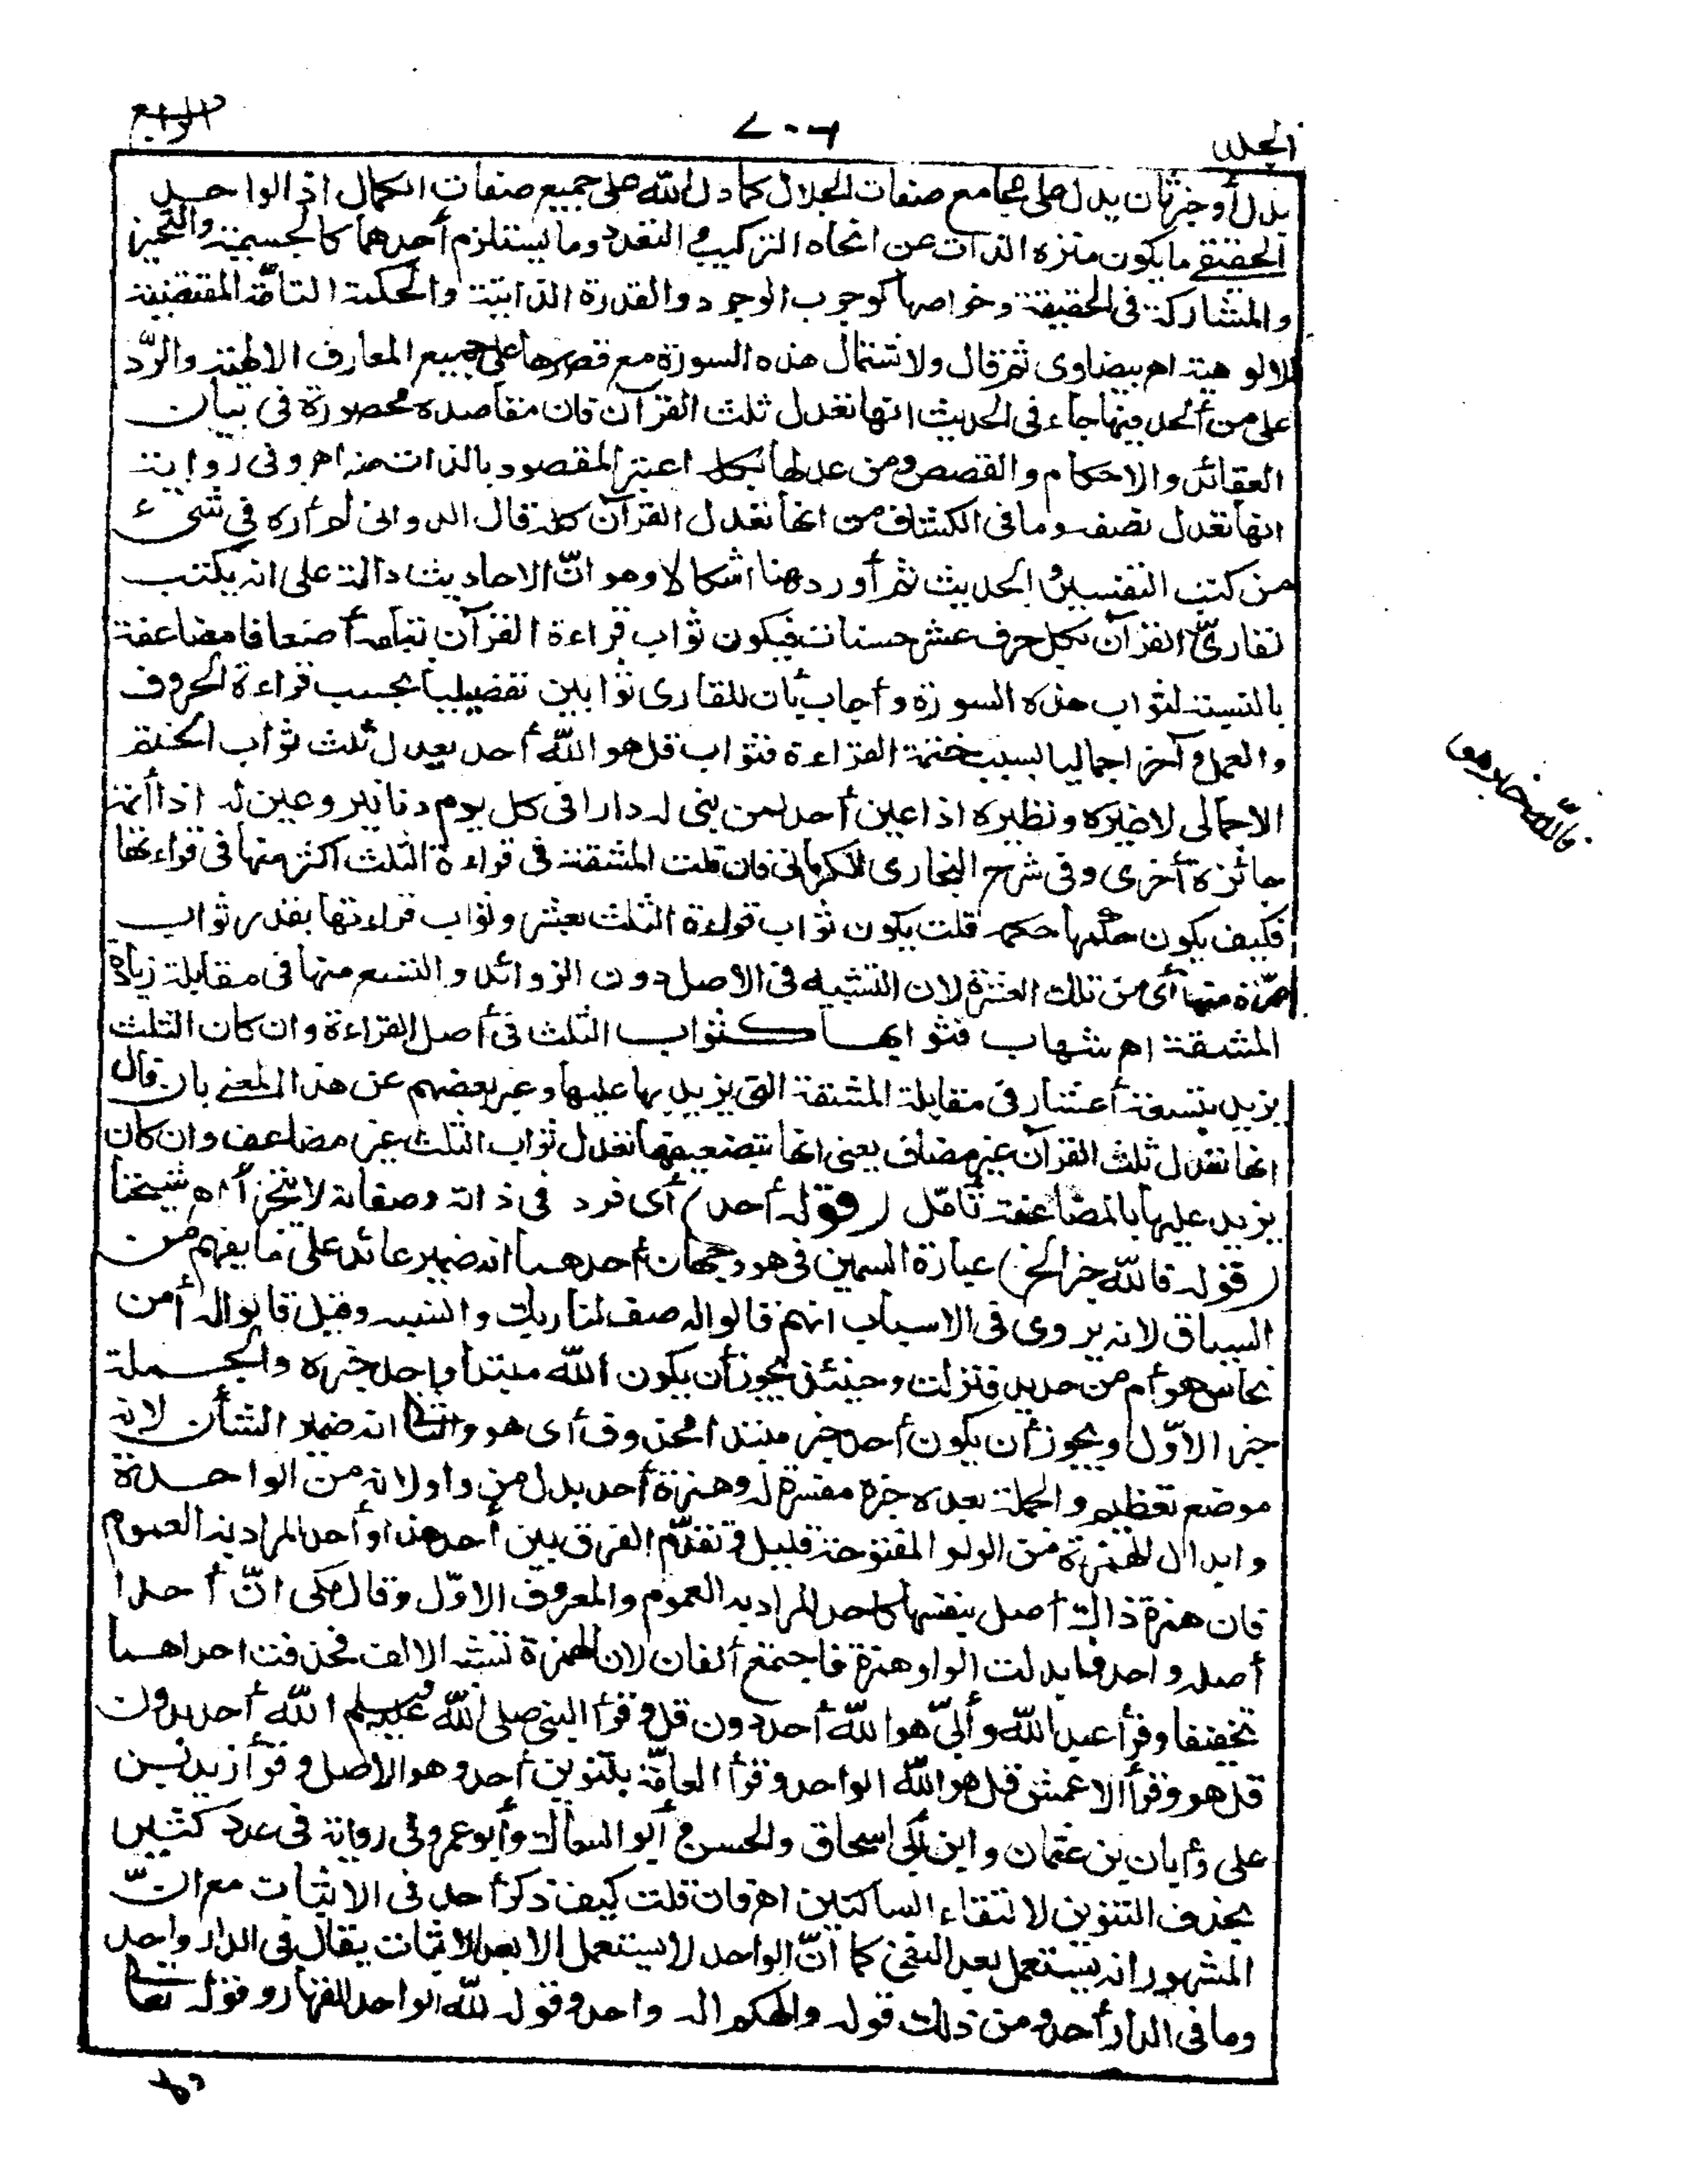 الجلد
٦٠٧
الرابع
بدل أو خبر ثان يدل على مجامع صفات الجلال كما دل الله على جميع صفات الكمال اذ الواحد
الحقيقى ما يكون منزه الذات عن انحاه التركيب والتعدد وما يستلزم أحدهما كالجسمية والتحيز
والمشاركة فى الحقيقة وخواصها كوجوب الوجود والقدرة الذاتية والحكمة التامّة المقتضية
للالوهية اه بيضاوى ثم قال ولاشتمال هذه السورة مع قصرها على جميع المعارف الالهية والردّ
على من ألحد فيها جاء فى الحديث انها تعدل ثلث القرآن فان مقاصده محصورة فى بيان
العقائد والاحكام والقصص ومن عدلها بكله اعتبر المقصود بالذات منه اه وفى رواية
انها تعدل نصفه وما فى الكشاف من انها تعدل القرآن كله قال الدوانى لم أره فى شىء
من كتب التفسير والحديث ثم أورد هنا اشكالا وهو انّ الاحاديث دالة على انه يكتب
لقارئ القرآن بكل حرف عشر حسنات فيكون ثواب قراءة القرآن بتمامه أضعافا مضاعفة
بالنسبة لثواب هذه السورة وأجاب بأن للقارى ثوابين تفضيليا بحسب قراءة الحروف
والعمل وآخر اجماليا بسبب ختمة القراءة فثواب قل هو الله أحد يعدل ثلث ثواب الختم
الاجمالى لا غيره ونظيره اذا عين أحد لمن بنى له دارا فى كل يوم دنانير وعين له اذا أتمه
جائزة أخرى وفى شرح البخارى للكرمانى فان قلت المشقة فى قراءة الثلث أكثر منها فى قراءتها
فكيف يكون حكمها حكمه قلت يكون ثواب قراءة الثلث بعشر وثواب قراءتها بقدر ثواب
مرّة منها أى من تلك العشرة لان التشبيه فى الاصل دون الزوائد والتسع منها فى مقابلة زيادة
المشقة اه شهاب فثوابها كثواب الثلث فى أصل القراءة وان كان الثلث
يزيد بتسعة أعشار فى مقابلة المشقة التى يزيد بها عليها وعبر بعضهم عن هذا المعنى بان قال
انها تعدل ثلث القرآن غير مضاف يعنى انها بتضعيفها تعدل ثواب الثلث غير مضاعف وان كان
يزيد عليها بالمضاعفة تأمّل (قوله أحد) أى فرد فى ذاته وصفاته لا يتجزأ اه شيخنا
(قوله فالله خبر الخ) عبارة السمين فى هو وجهان أحدهما انه ضمير عائد على ما يفهم من
السياق لانه يروى فى الاسباب انهم قالوا له صف لنا ربك وانسبه وقيل قالوا له أمن
نحاس هو أم من حديد فنزلت وحينئذ يجوز أن يكون الله مبتدأ وأحد خبره والجملة
خبر الاوّل ويجوز أن يكون أحد خبر مبتدا محذوف أى هو والثانى انه ضمير الشأن لانه
موضع تعظيم والجملة بعده خبره مفسرة له وهمزة أحد بدل من واو لانه من الواحدة
وابدال الهمزة من الواو المفتوحة قليل وتقدّم الفرق بين أحد هذا وأحد المراد به العموم
فان همزة ذاك أصل بنفسها كأحد المراد به العموم والمعروف الاوّل وقال مكى انّ أحدا
أصله واحد فأبدلت الواو همزة فاجتمع ألفان لان الهمزة تشبه الالف فحذفت احداهما
تخفيفا وقرأ عبد الله وأبىّ هو الله أحد دون قل وقرأ النبى صلى الله عليه وسلم الله أحد بدون
قل هو وقرأ الاعمش قل هو الله الواحد وقرأ العامّة بتنوين أحد وهو الاصل وقرأ زيد بن
على وأبان بن عثمان وابن أبى اسحاق والحسن وأبو السمال وأبو عمرو فى رواية فى عدد كثير
بحذف التنوين لالتقاء الساكنين اه فان قلت كيف ذكر أحد فى الاثبات مع انّ
المشهور انه يستعمل بعد النفى كما انّ الواحد لا يستعمل الا بعد الاثبات يقال فى الدار واحد
وما فى الدار أحد ومن ذلك قوله والهكم اله واحد وقوله لله الواحد القهار وقوله تعالى
فالله خبر هو